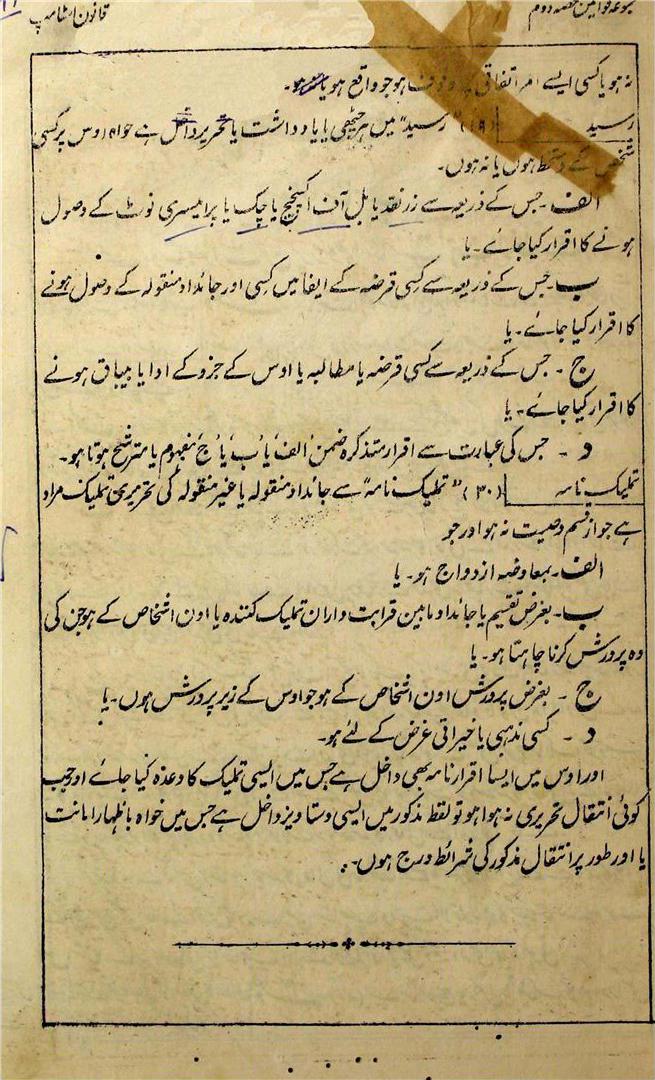 مجموعہ قوانین حصہ دوم
قانون اسٹامپ
نہ ہو یا کسی ایسے امر اتفاقی پر موقوف نہ ہو جو واقع ہو یا نہ ہو۔
رسید (۱۹) "رسید" میں ہر چٹھی یا یادداشت یا تحریر داخل ہے خواہ اوس پر کسی
شخص کے دستخط ہوں یا نہ ہوں۔
الف۔ جس کے ذریعہ سے زر نقد یا بل آف اکسچینج یا چک یا پرامیسری نوٹ کے وصول
ہونے کا اقرار کیا جائے۔ یا
ب۔ جس کے ذریعہ سے کسی قرضہ کے ایفا میں کسی اور جائداد منقولہ کے وصول ہونے
کا اقرار کیا جائے۔ یا
ج۔ جس کے ذریعہ سے کسی قرضہ یا مطالبہ یا اوس کے جزو کے ادا یا بیباق ہونے
کا اقرار کیا جائے۔ یا
د۔ جس کی عبارت سے اقرار متذکرہ ضمن 'الف' یا 'ب' یا 'ج' مفہوم یا مترشح ہوتا ہو۔
تملیک نامہ (۳۰) "تملیک نامہ" سے جائداد منقولہ یا غیر منقولہ کی تحریری تملیک مراد
ہے جو از قسم وصیت نہ ہو اور جو
الف۔ بمعاوضہ ازدواج ہو۔ یا
ب۔ بغرض تقسیم یا جائداد مابین قرابت داران تملیک کنندہ یا اون اشخاص کے ہو جن کی
وہ پرورش کرنا چاہتا ہو۔ یا
ج۔ بغرض پرورش اون اشخاص کے ہو جو اوس کے زیر پرورش ہوں۔ یا
د۔ کسی مذہبی یا خیراتی غرض کے لئے ہو۔
اور اوس میں ایسا اقرار نامہ بھی داخل ہے جس میں ایسی تملیک کا وعدہ کیا جائے اور جب
کوئی انتقال تحریری نہ ہوا ہو تو لفظ مذکور میں ایسی دستاویز داخل ہے جس میں خواہ باظہار امانت
یا اور طور پر انتقال مذکور کی شرائط درج ہوں۔